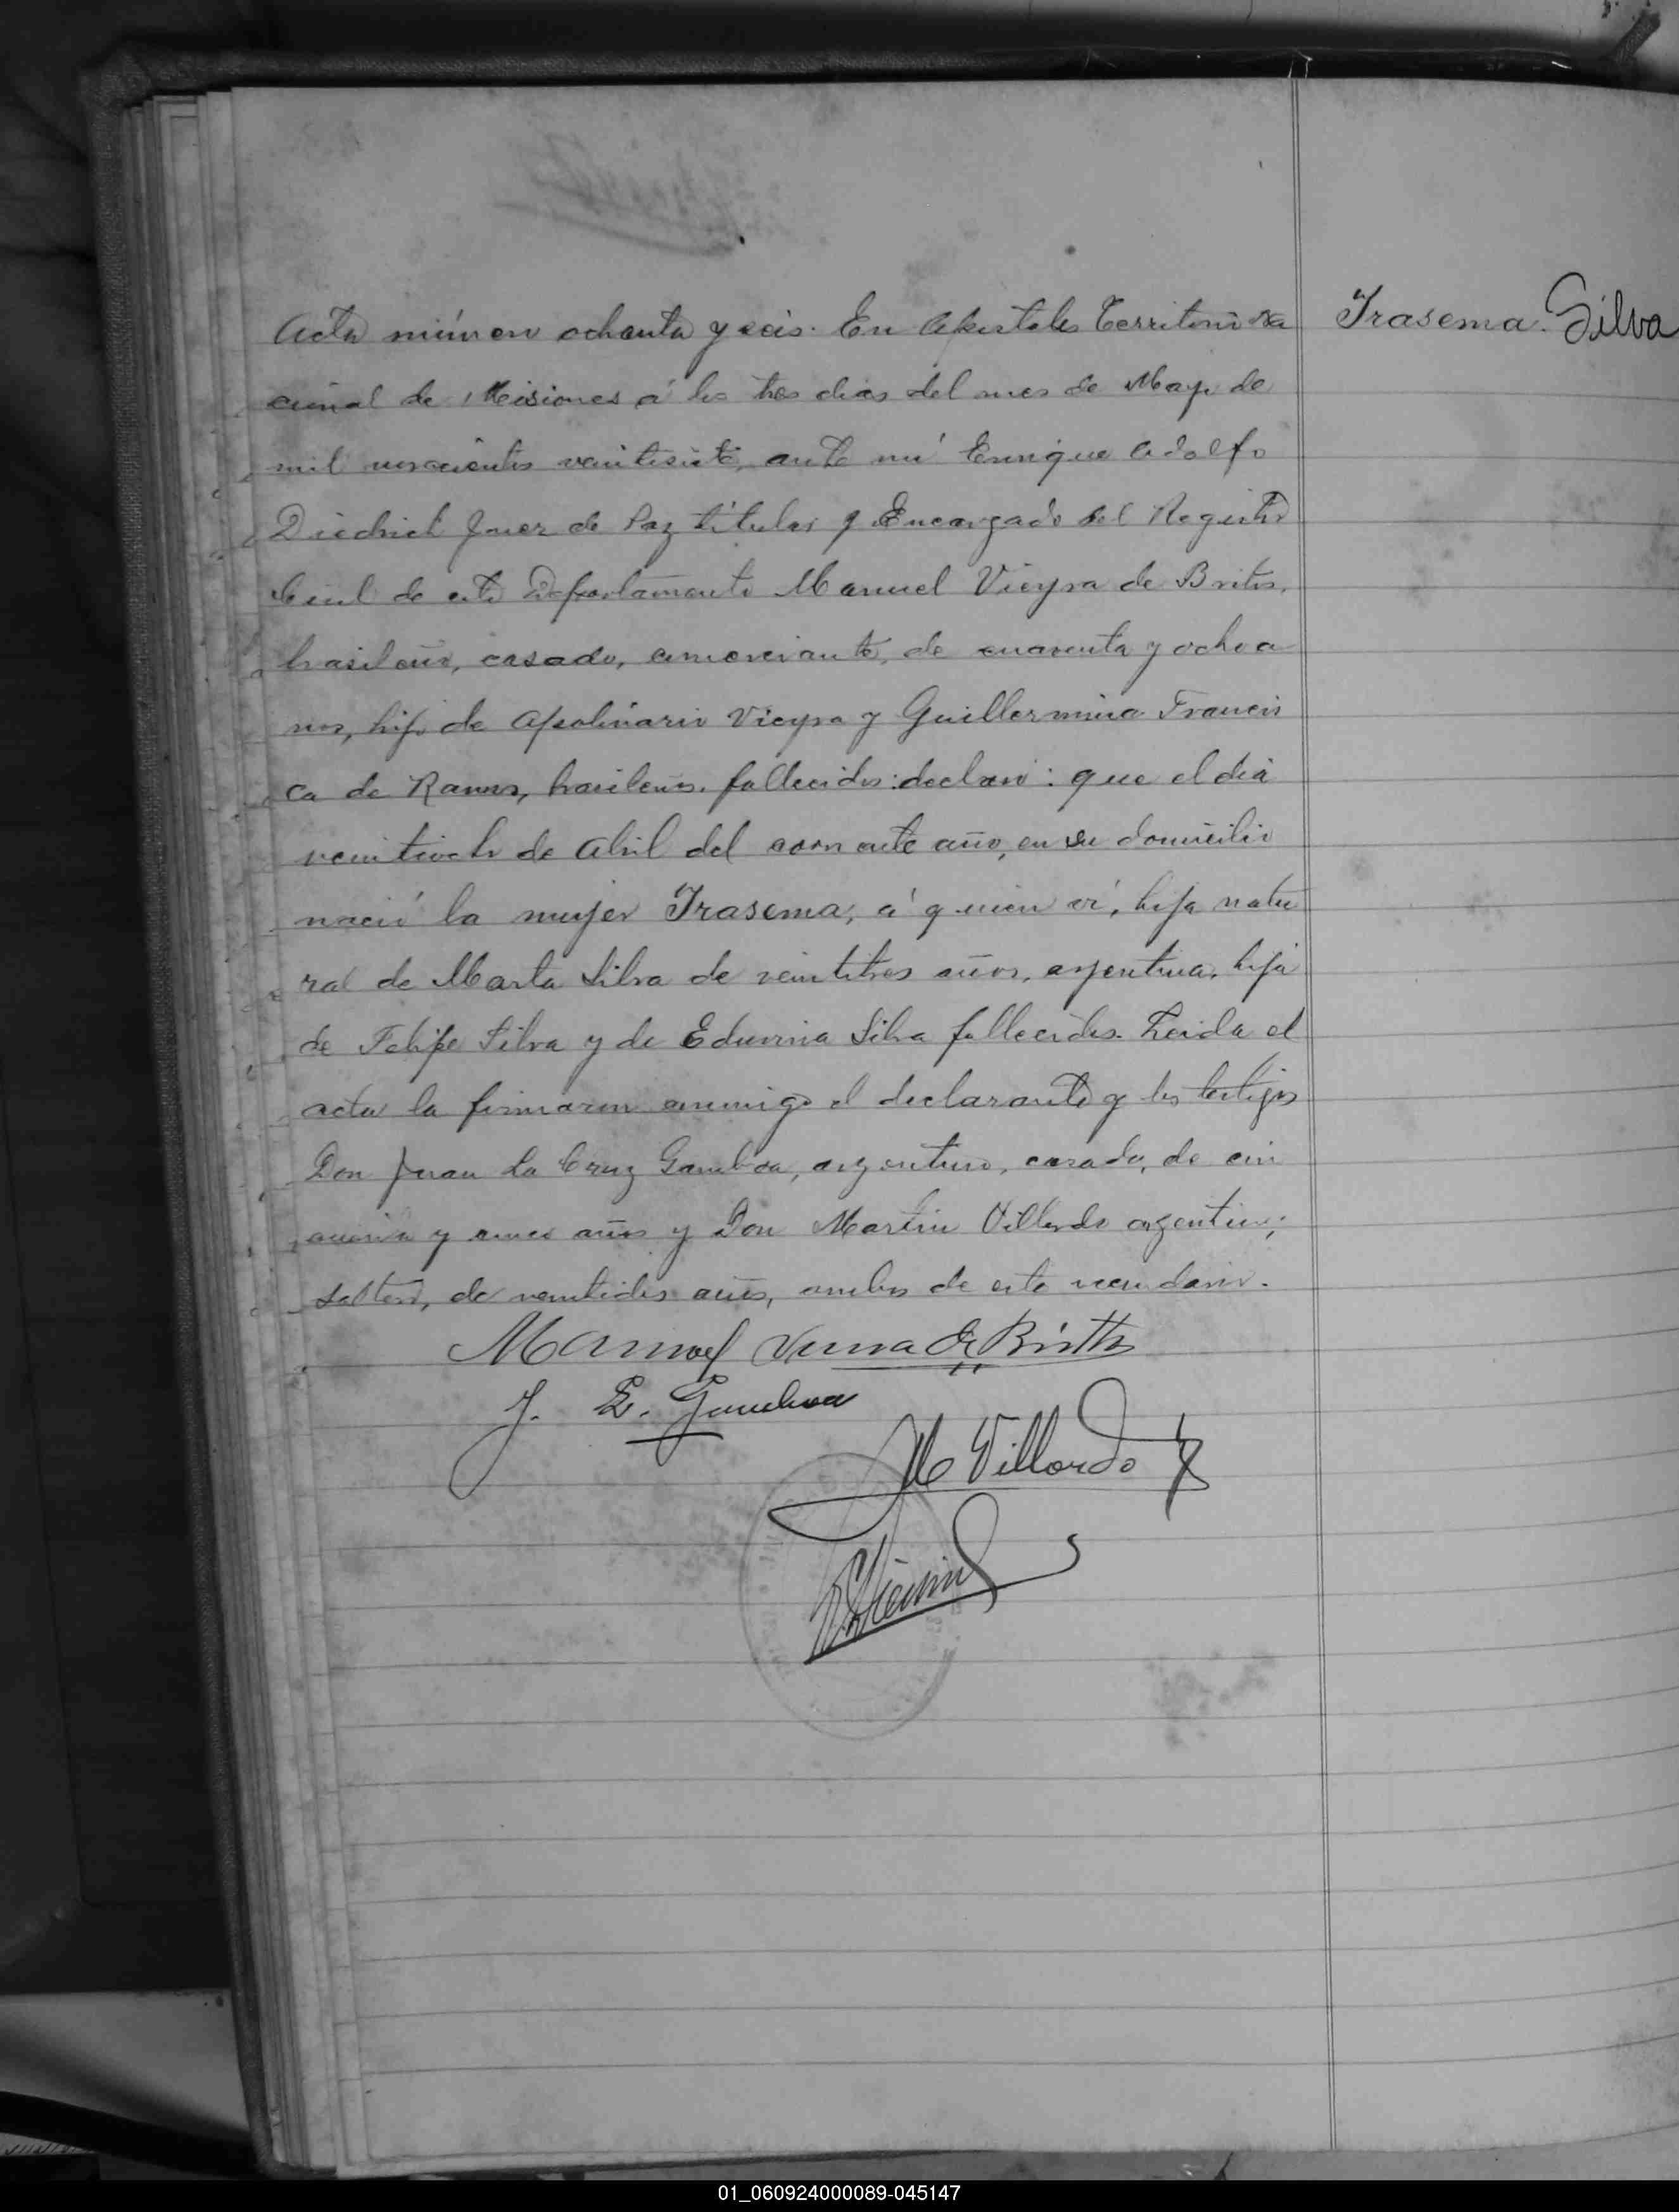 Acta número ochenta y seis. En Apostoles Territorio Na
cional de Misiones á los tres dias del mes de Mayo de
mil novecientos veintisiete, ante mí Enrique Adolfo
Diedrich Juez de Paz titular y Encargado del Registro
Civil de este Departamento Manuel Vieyra de Britos,
brasileño, casado, comerciante, de cuarenta y ocho a
ños, hijo de Apolinario Vieyra y Guillermina Francis
ca de Ramos, brasileños, fallecidos: declaró: que el dia
veintiocho de Abril del corriente año, en su domicilio
nació la mujer Irasema, á quien vi, hija natu
ral de Marta Silva de veintitres años, argentina, hija
de Felipe Silva y de Eduvina Silva fallecidos. Leida el
acta la firmaron conmigo el declarante y los testigos
Don Juan La Cruz Gamboa, argentino, casado, de cin
cuenta y cinco años y Don Martin Villordo argentino,
soltero, de veintidos años, ambos de este vecindario.
Irasema. Silva
Manoel de Britto
J. L. Gamboa
M Villordo
01_060924000089-045147